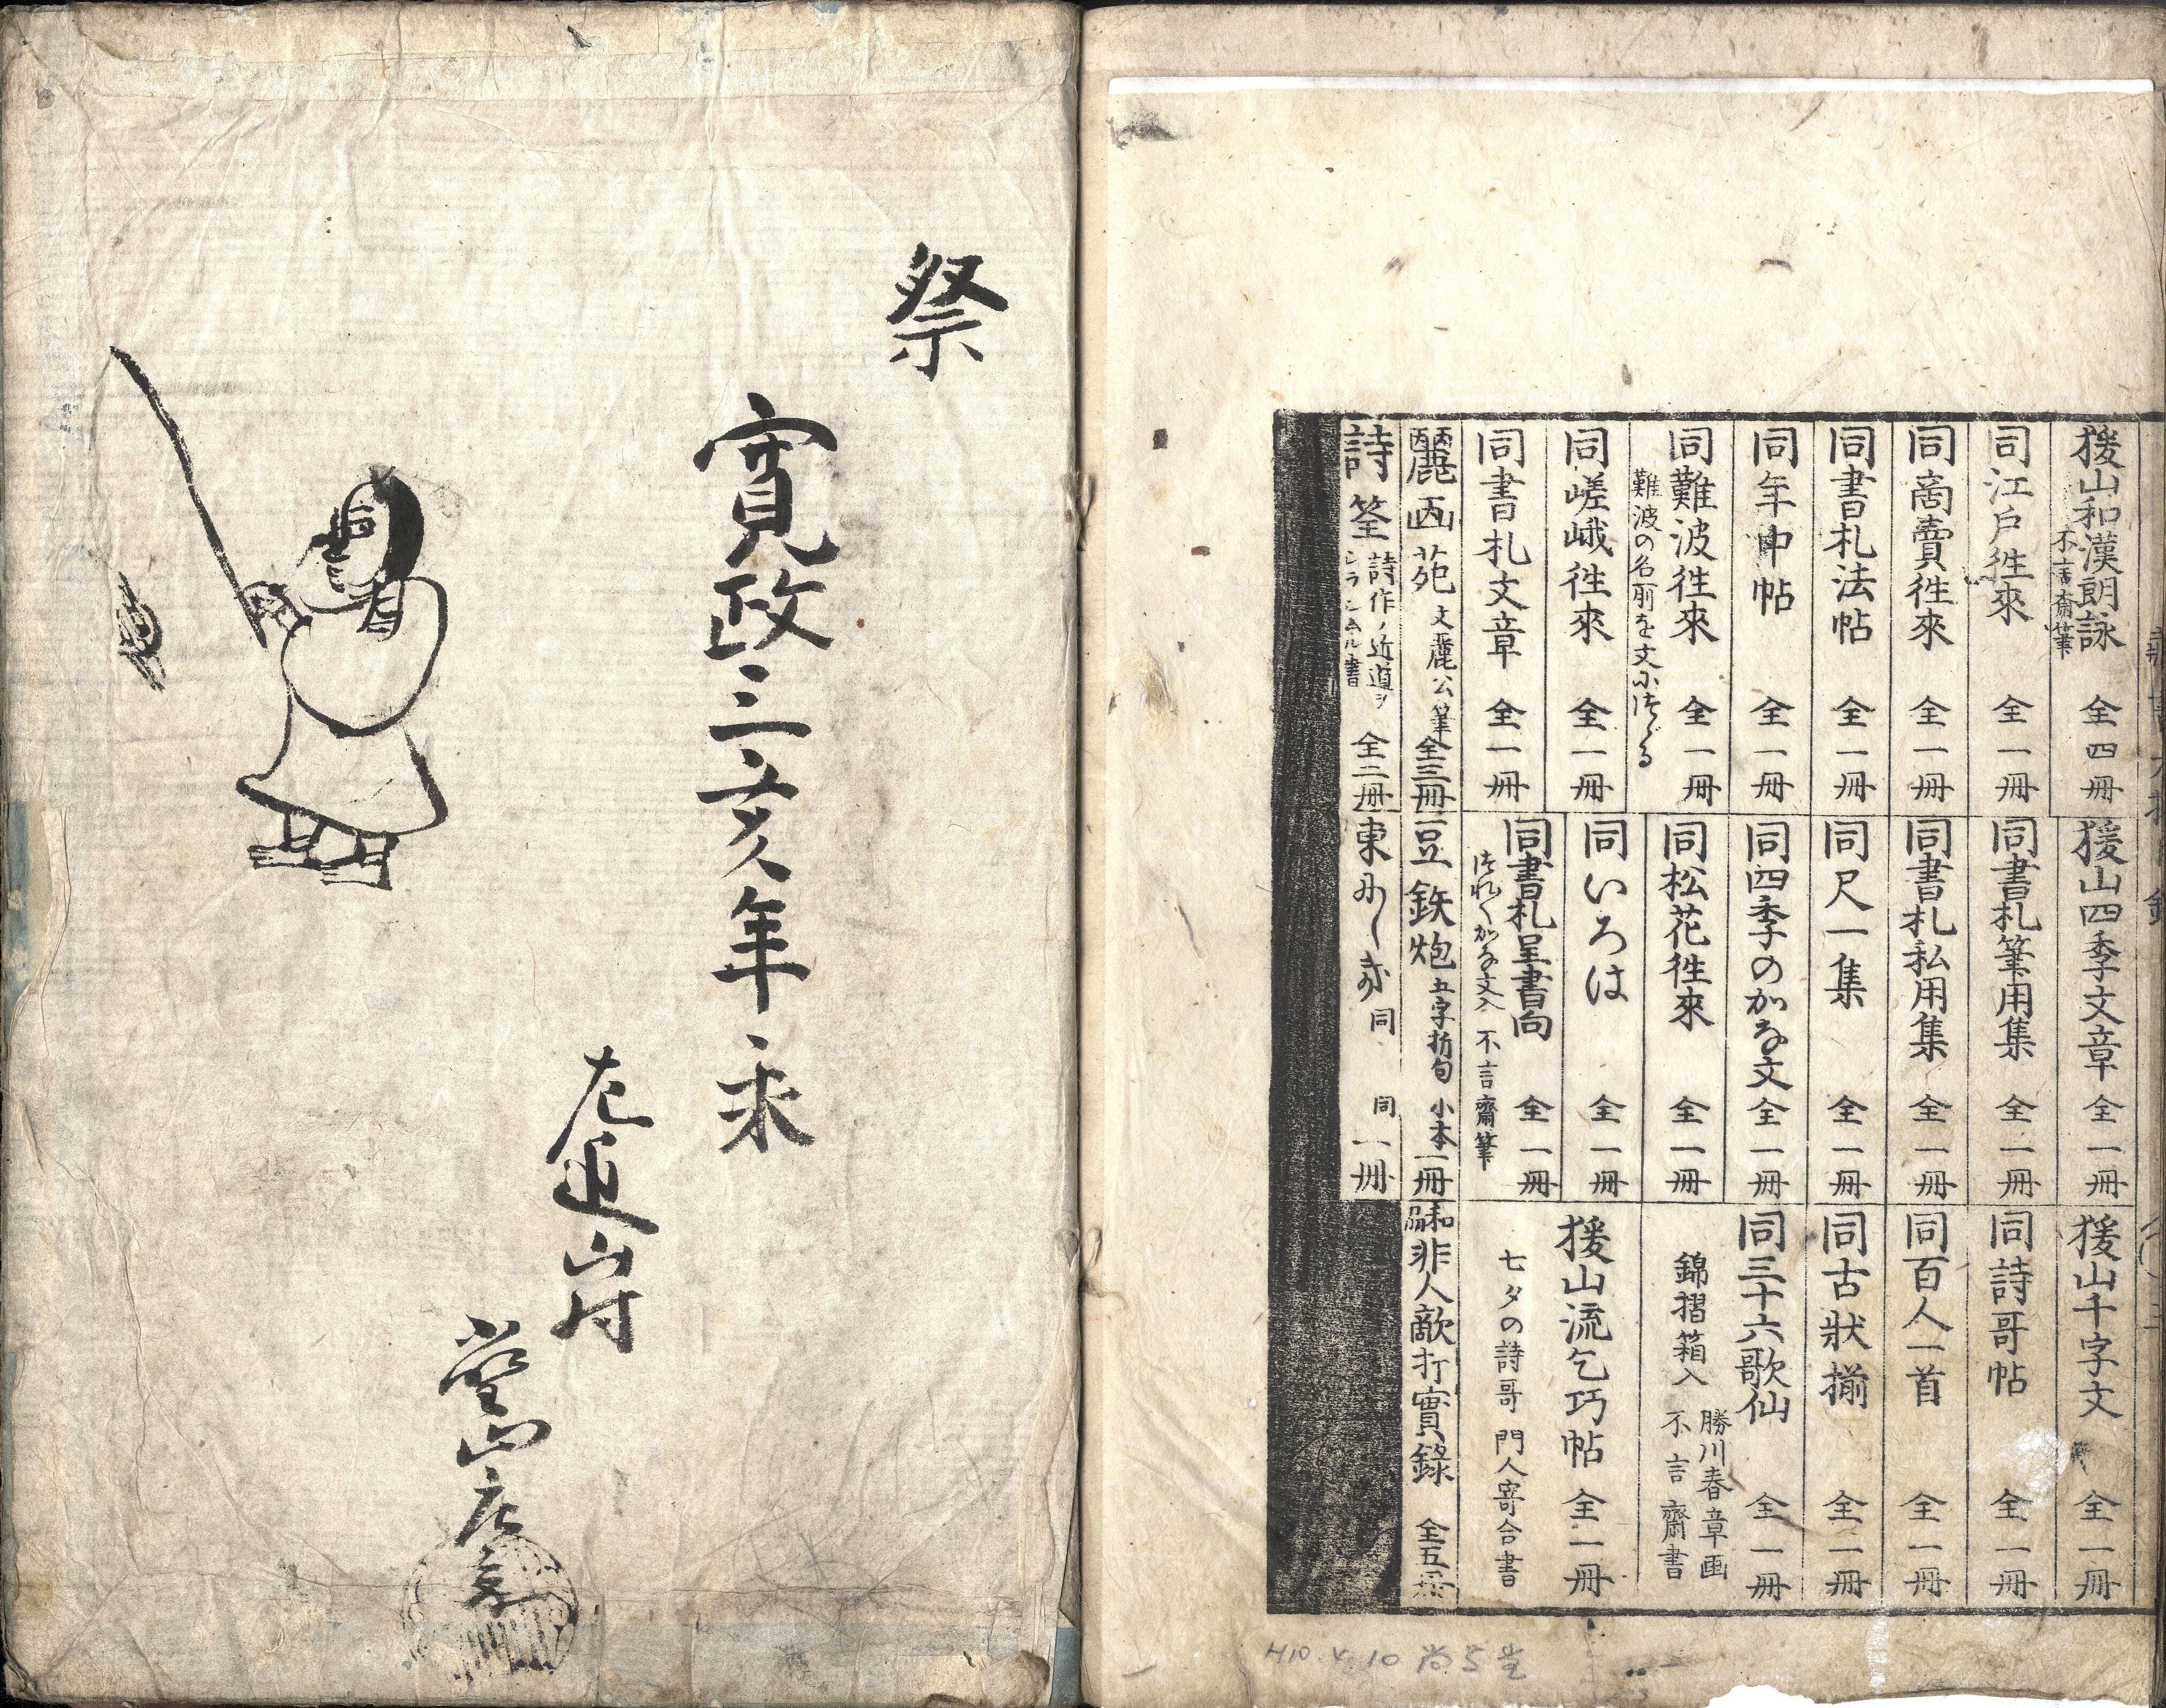 猨山和漢朗詠 全四冊
不言齋筆
同江戶徃來 全一冊
同啇賣徃來 全一冊
同書札法帖 全一冊
同年中帖 全一冊
同難波徃來 全一冊
難波の名所を文につゞる
同嵯峨徃來 全一冊
同書札文章 全一冊
麗画苑 文麗公筆 全三冊
詩筌 詩作ノ近道ヲ 全二冊
シラシムル書
猨山四季文章 全一冊
同書札筆用集 全一冊
同書札私用集 全一冊
同尺一集 全一冊
同四季のかな文 全一冊
同松花徃來 全一冊
同いろは 全一冊
同書札呈書向 全一冊
つれ〱かな文入 不言齋筆
豆鉄炮 五字折句 小本一冊
東 同 同 一冊
猨山千字文 全一冊
同詩哥帖 全一冊
同百人一首 全一冊
同古狀揃 全一冊
同三十六歌仙 全一冊
勝川春章画
錦摺箱入 不言齋書
猨山流乞巧帖 全一冊
七夕の詩哥 門人寄合書
非人敵打實錄 全五冊
H10.V.10
祭
寛政三亥年求